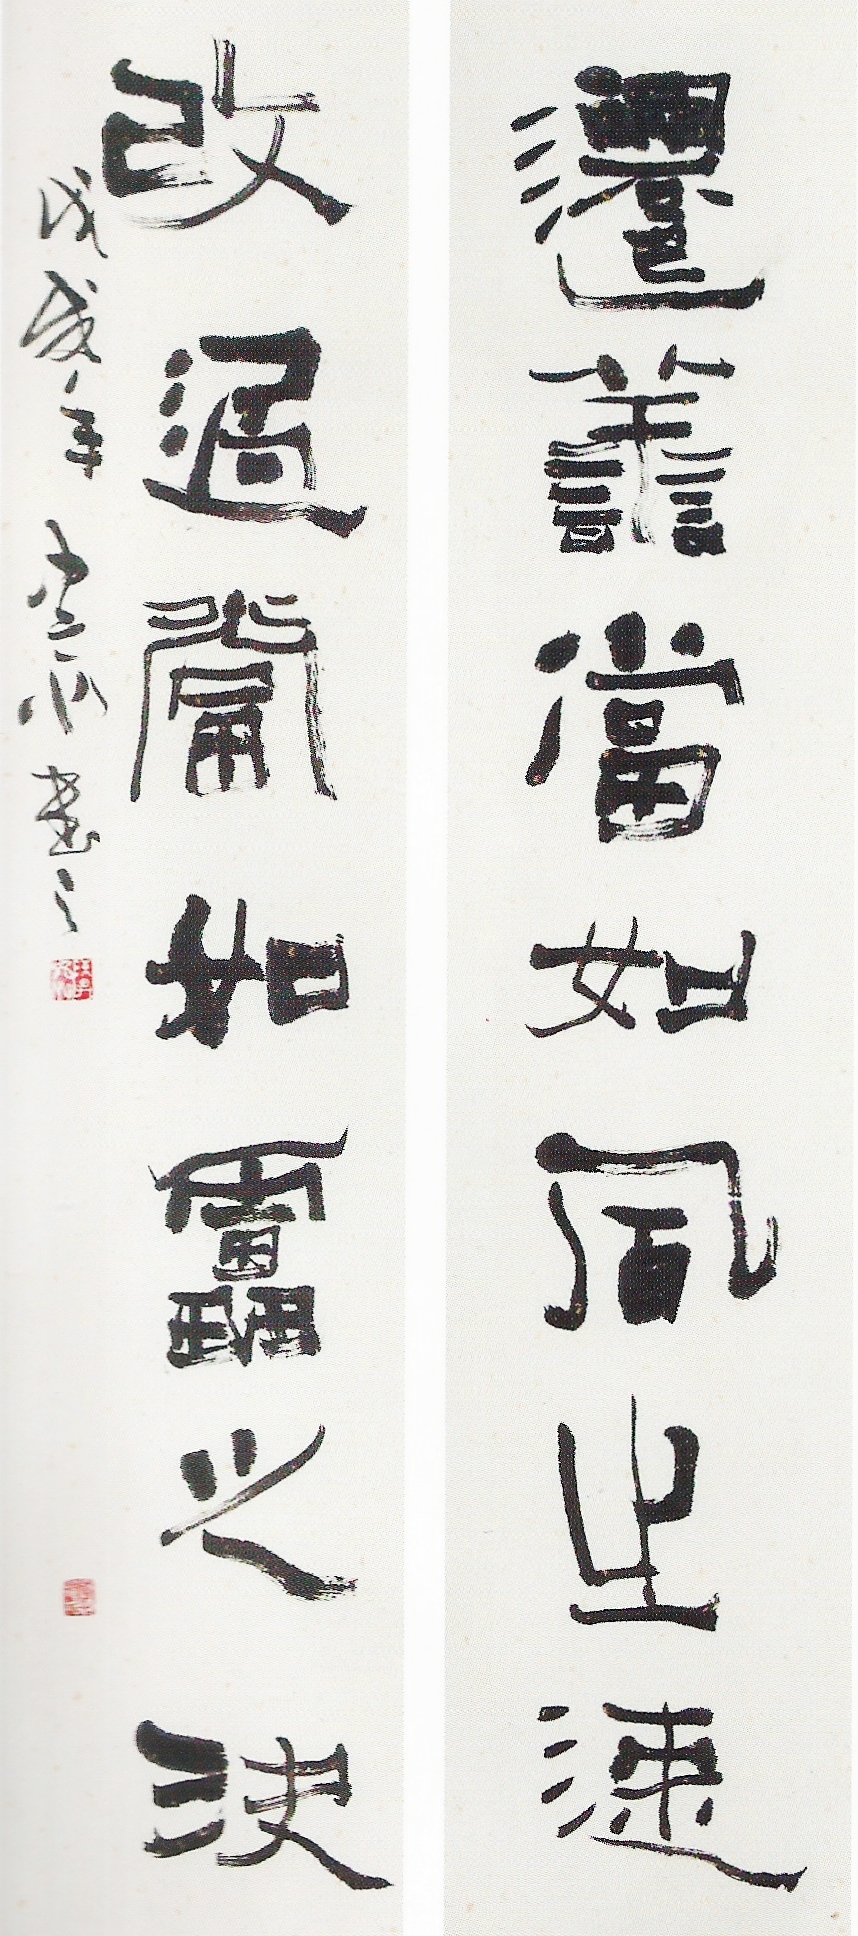 遷善當如風之速
改過當如雷之決
戊戌年
書